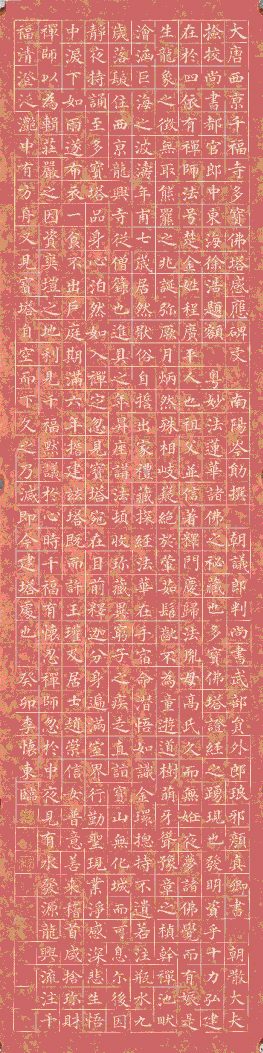 大唐西京千福寺多寶佛塔感應碑文　南陽岑勛撰　朝議郎判尚書武部員外郎琅邪顏真卿書　朝散大夫
撿挍尚書都官郎中東海徐浩題額　粵妙法蓮華諸佛之秘藏也多寶佛塔證經之踴現也發明資乎十力弘建
在於四依有禪師法号楚金姓程廣平人也祖父並信著釋門慶歸法胤母高氏久而無妊夜夢諸佛覺而有娠是
生龍象之徵無取熊羆之兆誕弥厥月炳然殊相岐嶷絕於葷茹髫齔不為童遊道樹萌牙聳豫章之楨幹禪池畎
澮涵巨海之波濤年甫七歲居然猒俗自誓出家禮藏探經法華在手宿命潛悟如識金環揔持不遺若注瓶水九
歲落髮住西京龍興寺從僧籙也進具之年昇座講法頓收珍藏異窮子之疾走直詣寶山無化城而可息尔後因
靜夜持誦至多寶塔品身心泊然如入禪定忽見寶塔宛在目前釋迦分身遍滿空界行勤聖現業淨感深悲生悟
中淚下如雨遂布衣一食不出戶庭期滿六年誓建茲塔既而許王瓘及居士趙崇信女普意善來稽首咸捨珍財
禪師以為輯莊嚴之因資爽塏之地利見千福默議於心時千福有懷忍禪師忽於中夜見有水發源龍興流注千
福清澄泛灩中有方舟又見寶塔自空而下久之乃滅即今建塔處也　癸卯季懷東臨